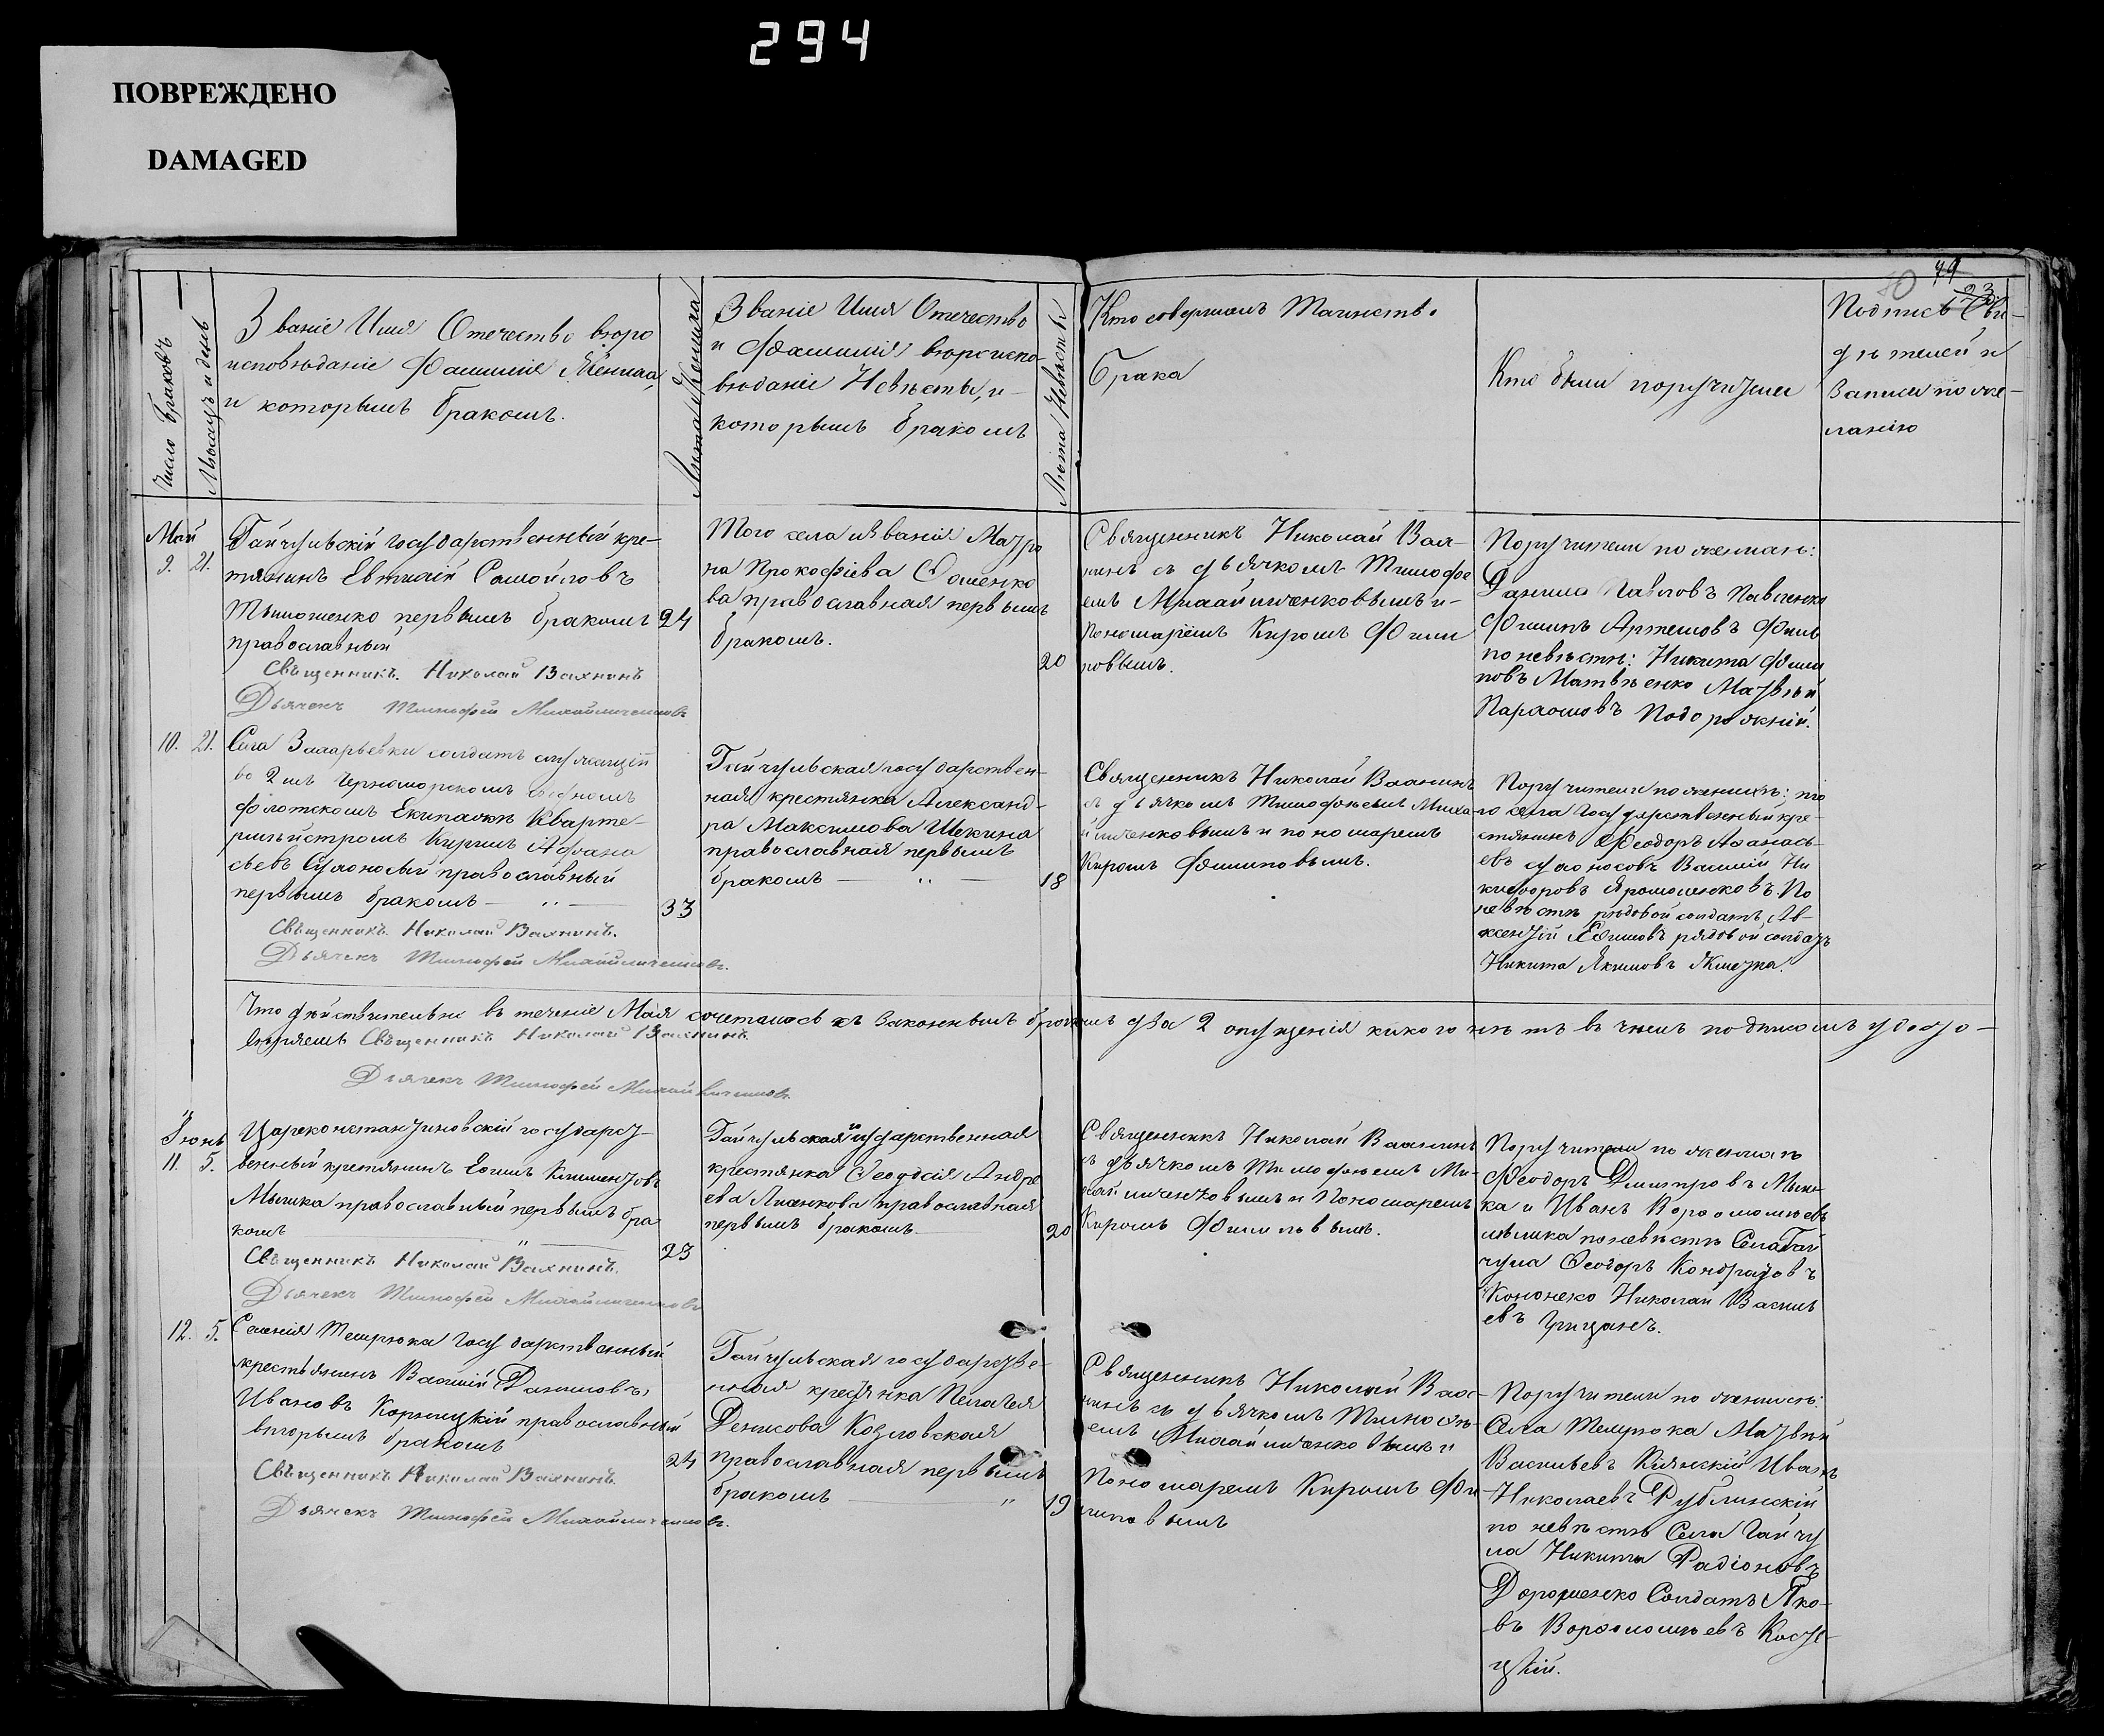 294
ПОВРЕЖДЕНО
DAMAGED
79
23
Число браковъ
Мѣсяцъ и день
Званіе Имя Отечество вѣро
исповѣданіе Фамилія Жениха
и которымъ бракомъ.
Лѣта Жениха
Званіе Имя Отечество
и Фамилія вѣроиспо-
вѣданіе Невѣсты, и-
которымъ бракомъ
Лѣта Невѣсты
Кто совершалъ Таинство
Брака
Кто были поручители
Подписъ Сви-
дѣтелей и
Записи по же-
ланію
Май
9. 21.
Гайчульскій государственный кре-
тянинъ Евтихій Самойловъ
Тимошенко первымъ бракомъ
православный
24
Священникъ. Николай Вахнинъ
Дьячекъ Тимофей Михайличенковъ
Того села и званія Матро
на Прокофіева Фоменко
ва православная первымъ
бракомъ.
20
Священникъ Николай Вах-
нинъ съ дьячкомъ Тимофѣ
емъ Михайличенковымъ и-
Пономарёмъ Киромъ Фили
повымъ.
Поручители по женихѣ:
Данило Павловъ Павленко
Филипъ Артемовъ Филь
по невѣстѣ: Никита Фили
повъ Матвѣенко Матвѣй
Парфомовъ Подорожній.
10. 21.
Села Захарьевки солдатъ служащій
во 2мъ Черноморскомъ
флотскомъ Екипажѣ Кварте-
рмейстромъ Кирилъ Афана
сьевъ Сухоносый православный
первымъ бракомъ
33
Священникъ. Николай Вахнинъ.
Дьячекъ Тимофей Михайличенковъ.
Гайчульская государствен-
ная крестянка Александ-
ра Максимова Щекина
православная первымъ
бракомъ
18
Священникъ Николай Вахнинъ
съ дьячкомъ Тимофѣемъ Миха-
йличенковымъ и пономаремъ
Киромъ Филиповымъ.
Поручители по женихѣ: то
го села Государственный кре-
стянинъ Феодоръ Афанась-
евъ Сухоносовъ Василій Ни
кифоровъ Ярмошенковъ По
невѣстѣ рядовой солдатъ Ав-
ксентій Ефимовъ рядовой солдатъ
Никита Якимовъ
Что дѣйствительно въ теченіе Мая сочеталось съ Законнымъ бракомъ два 2 опущенія никого нѣтъ въ чемъ подписомъ удосто-
вѣряемъ Священникъ Николай Вахнинъ.
Дьячекъ Тимофей Михайличенковъ.
Іюнь
11. 5.
Цареконстантиновскій государст
венный крестянинъ Ефимъ Климентовъ
Мышка православный первымъ бра
комъ
23
Священникъ Николай Вахнинъ.
Дьячекъ Тимофей Михайличенковъ
Гайчульская государственная
крестянка Феодосія Андре
ева Лисенкова православная
первымъ бракомъ
20
Священникъ Николай Вахнинъ
съ дьячкомъ Тимофѣемъ Ми-
хайличенковымъ и Пономаремъ
Киромъ Филиповымъ.
Поручители по женихѣ
Феодоръ Дмитровъ Мыш-
ка и Иванъ Ворфоломѣевъ
мышка по невѣстѣ Села Гай
чула Феодоръ Кондратовъ
Кононеко Николай Василь
евъ Грицанъ.
12. 5.
Селенія Темрюка Государственный
крестьянинъ Василій Даниловъ,
Ивановъ Корницкій православный
вторымъ бракомъ
24
Священникъ Николай Вахнинъ.
Дьячекъ Тимофей Михайличенковъ.
Гайчульская государстве-
нная крестянка Пелагея
Денисова Козловская
православная первымъ
бракомъ
19
Священникъ Николай Вах-
нинъ съ дьячкомъ Тимофѣ-
емъ Михайличенковымъ и
Пономаремъ Киромъ Фи
липовымъ
Поручители по женихѣ:
Села Темрюка Матвѣй
Васильевъ Киянскій Иванъ
Николаевъ Рублинскій
по невѣстѣ Села Гайчу
ла Никита Радіоновъ
Дорошенко Солдатъ Яко-
въ Ворфоломѣевъ Косте-
цкій.